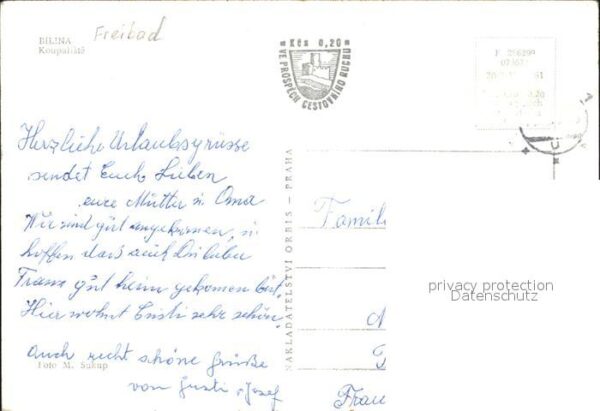 BÍLINA
Koupaliště
Freibad
Kčs 0,20
VE PROSPĚCH CESTOVNÍHO RUCHU
Herzliche Urlaubsgrüsse
sendet Euch Lieben
eure Mutter u. Oma
Wir sind gut angekommen, u.
hoffen das auch Du lieber
Franz gut heim gekomen bist,
Hier wohnt Gusti sehr schön,
Auch recht schöne Grüße
von Gusti u Josef
Foto M. Sukup
NAKLADATELSTVÍ ORBIS - PRAHA
Famil
privacy protection
Datenschutz
Frau